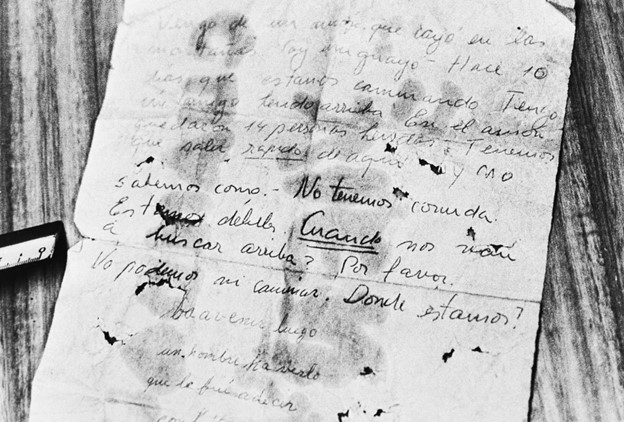 Vengo de un avión que cayó en las
montañas. Soy uruguayo - Hace 10
dias que estamos caminando. Tengo
un amigo herido arriba. En el avión
quedaron 14 personas heridas. Tenemos
que salir rapido de aquí y no
sabemos como. - No tenemos comida.
Estamos débiles. Cuando nos van
a buscar arriba? Por favor.
No podemos ni caminar. Donde estamos?
venir luego
un hombre a verlo
que le fui a decir